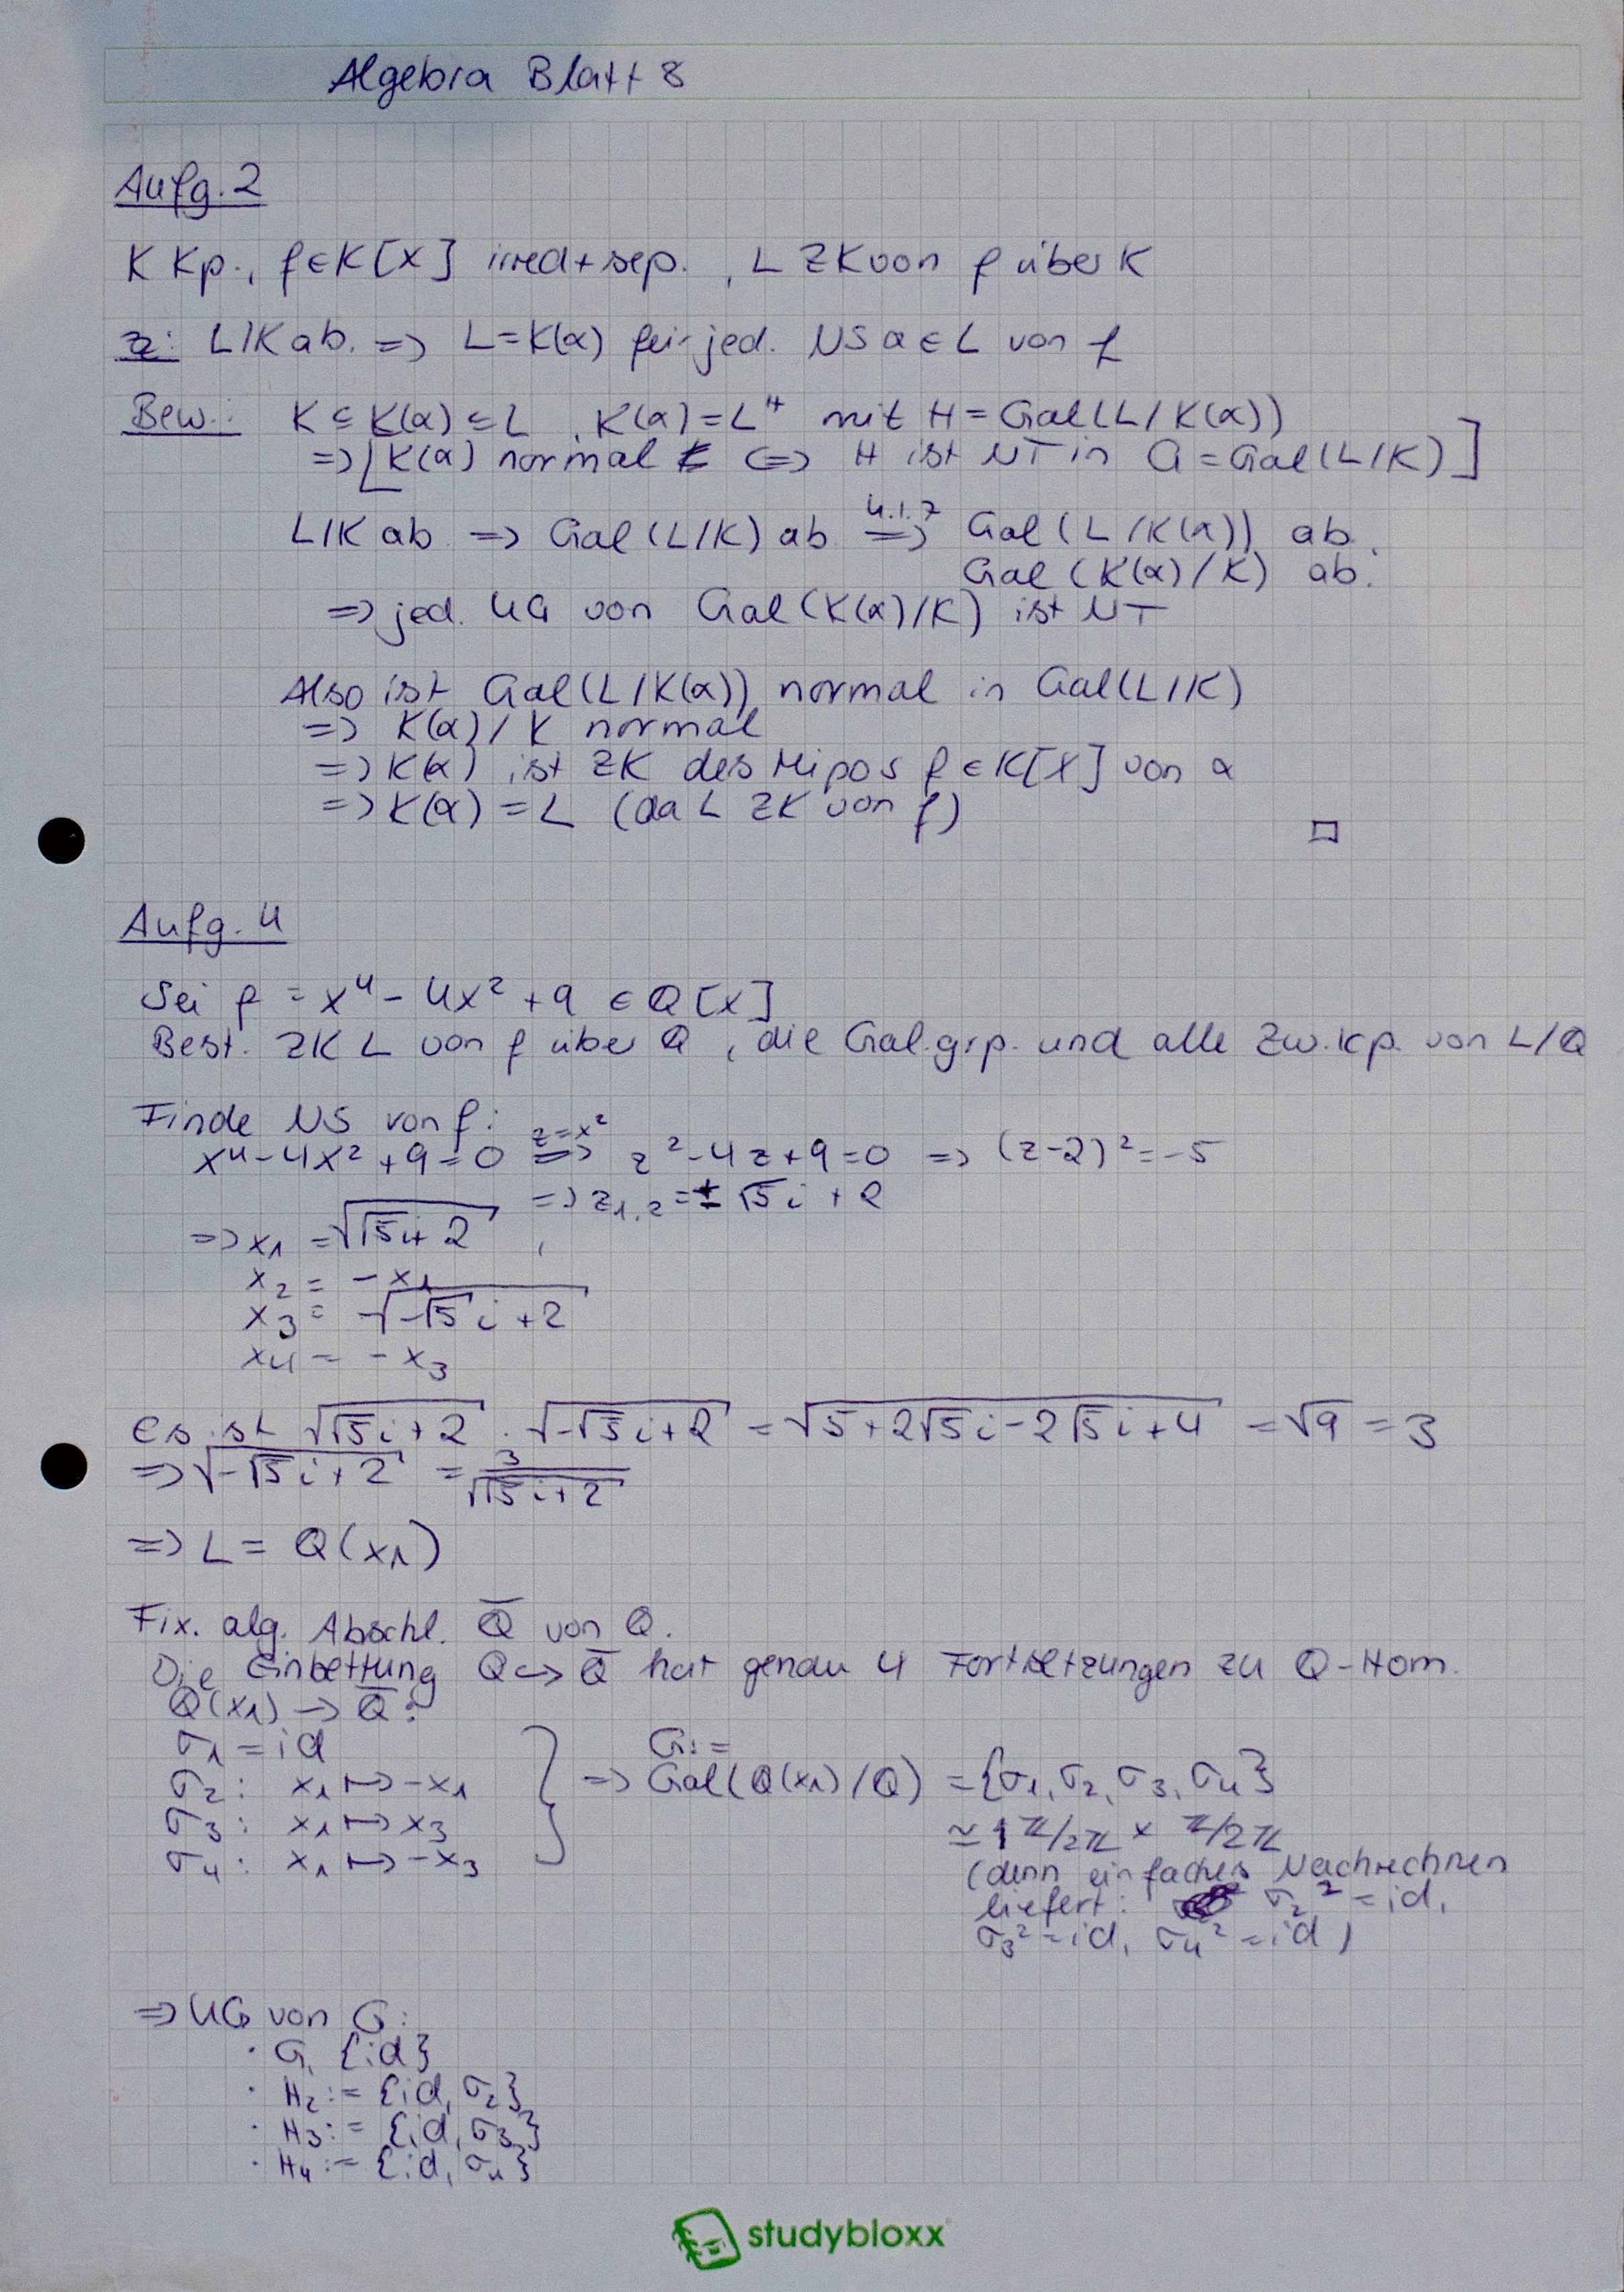 Algebra Blatt 8
Aufg. 2
K Kp., f∈K[X] irred+sep., L ZK von f über K
zz: L/K ab. => L=K(α) für jed. NS α∈L von f
Bew.: K⊆K(α)⊆L, K(α)=L^H mit H=Gal(L/K(α))
=> [K(α) normal <=> H ist NT in G=Gal(L/K)]
L/K ab => Gal(L/K) ab =4.1.7=> Gal(L/K(α)) ab.
Gal(K(α)/K) ab.
=> jed. UG von Gal(K(α)/K) ist NT
Also ist Gal(L/K(α)) normal in Gal(L/K)
=> K(α)/K normal
=> K(α) ist ZK des Mipos f∈K[X] von α
=> K(α) = L (da L ZK von f)
□
Aufg. 4
Sei f = x⁴ - 4x² + 9 ∈ Q[X]
Best. ZK L von f über Q, die Gal.grp. und alle Zw.kp. von L/Q
Finde NS von f:
x⁴-4x²+9=0 =z=x²=> z²-4z+9=0 => (z-2)²=-5
=> z₁,₂=±√5 i + 2
=> x₁ = √(√5 i + 2) ,
x₂ = -x₁
x₃ = √(-√5 i + 2)
x₄ = -x₃
Es ist √(√5 i+2) · √(-√5 i+2) = √(5+2√5 i-2√5 i+4) = √9 = 3
=> √(-√5 i+2) = 3/√(√5 i+2)
=> L = Q(x₁)
Fix. alg. Abschl. Q̅ von Q.
Die Einbettung Q↪Q̅ hat genau 4 Fortsetzungen zu Q-Hom.
Q(x₁) → Q̅:
σ₁ = id
σ₂: x₁ ↦ -x₁
σ₃: x₁ ↦ x₃
σ₄: x₁ ↦ -x₃
G:=
=> Gal(Q(x₁)/Q) = {σ₁, σ₂, σ₃, σ₄}
≃ Z/2Z × Z/2Z
(denn einfaches Nachrechnen
liefert: σ₂² = id,
σ₃² = id, σ₄² = id)
=> UG von G:
· G, {id}
· H₂ := {id, σ₂}
· H₃ := {id, σ₃}
· H₄ := {id, σ₄}
studybloxx